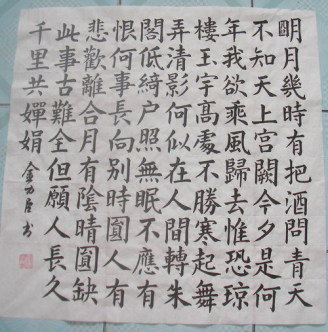 明月幾時有把酒問青天
不知天上宮闕今夕是何
年我欲乘風歸去惟恐瓊
樓玉宇高處不勝寒起舞
弄清影何似在人間轉朱
閣低綺户照無眠不應有
恨何事長向別時圓人有
悲歡離合月有陰晴圓缺
此事古難全但願人長久
千里共嬋娟